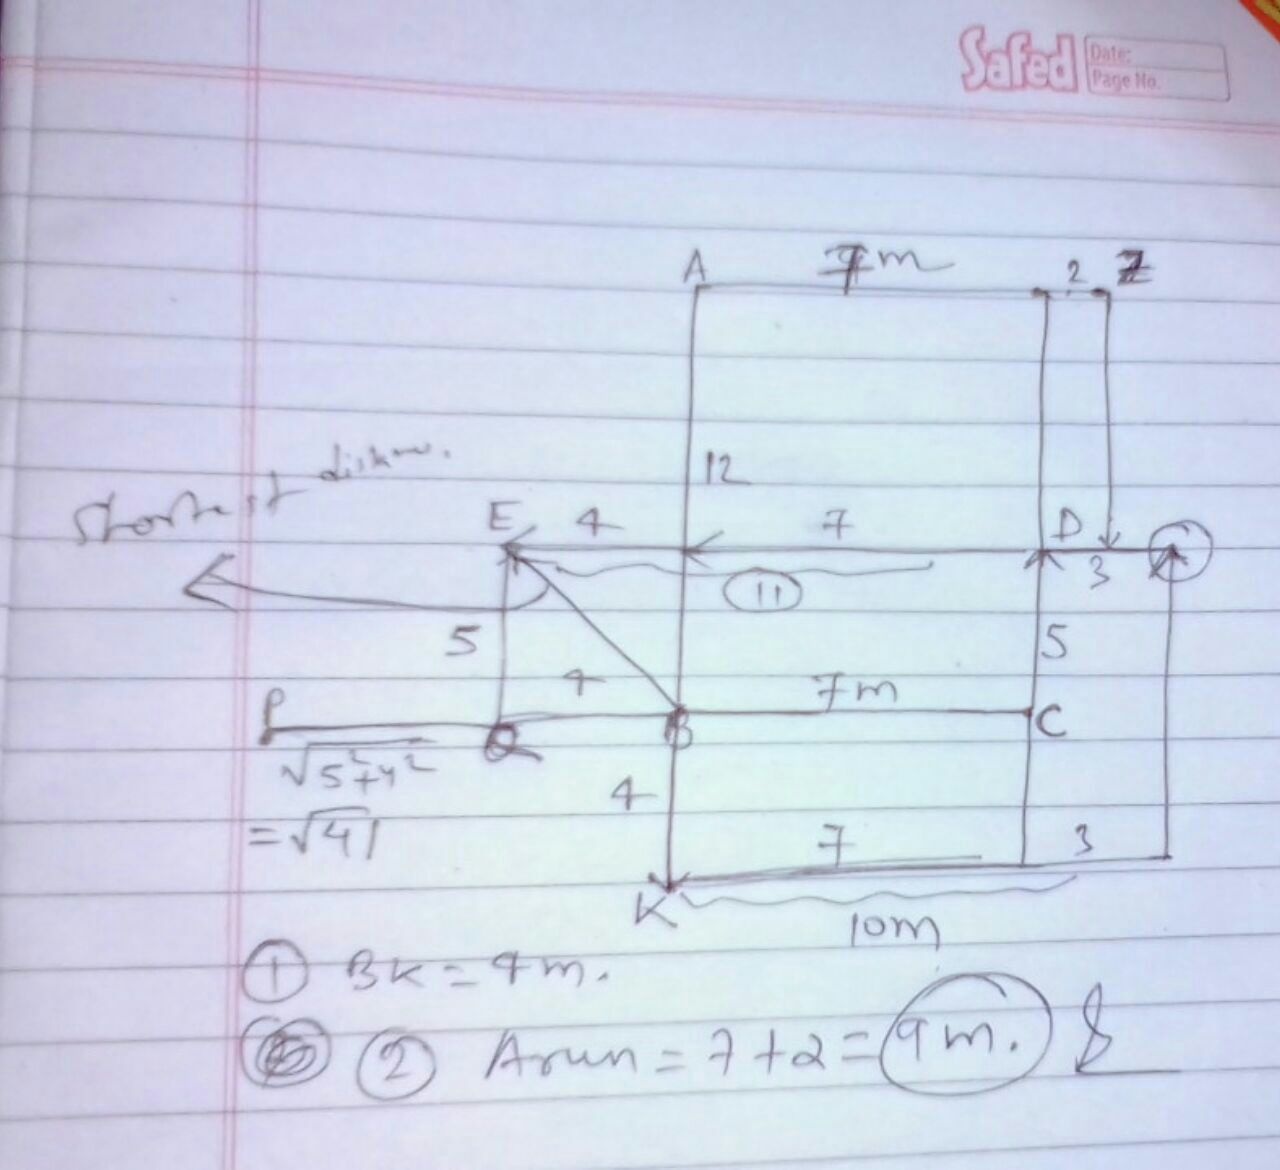 Safed
Date:
Page No.
A 7m 2 Z
12
Shortest distance.
E 4 7 D 3
11
5 5
4 7m
P Q B C
√5²+4²
4
= √41
7 3
K
10m
① BK = 4m.
② Arun = 7+2 = 9m. &